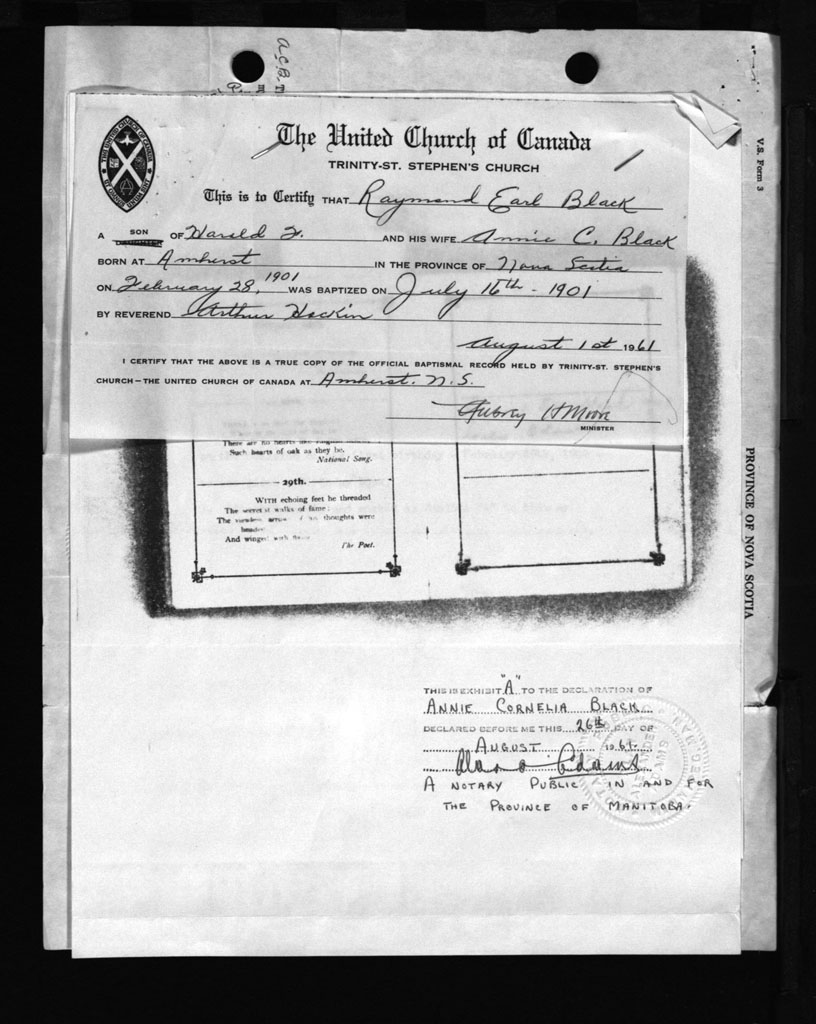 A.C.B.
V.S. Form 3
The United Church of Canada
TRINITY-ST. STEPHEN'S CHURCH
This is to Certify THAT Raymond Earl Black
A SON OF Harold F. AND HIS WIFE Annie C. Black
BORN AT Amherst IN THE PROVINCE OF Nova Scotia
ON February 28, 1901 WAS BAPTIZED ON July 16th - 1901
BY REVEREND Arthur Hockin
August 1st 1961
I CERTIFY THAT THE ABOVE IS A TRUE COPY OF THE OFFICIAL BAPTISMAL RECORD HELD BY TRINITY-ST. STEPHEN'S
CHURCH—THE UNITED CHURCH OF CANADA AT Amherst. N.S.
Aubrey H Moore
MINISTER
There are no hearts like
Such hearts of oak as they be.
National Song.
29th.
WITH echoing feet he threaded
The secretest walks of fame:
The viewless arrows of his thoughts were
headed
And winged with flame
The Poet.
PROVINCE OF NOVA SCOTIA
THIS IS EXHIBIT "A" TO THE DECLARATION OF
ANNIE CORNELIA BLACK
DECLARED BEFORE ME THIS 26th DAY OF
AUGUST 1961.
Adams
A NOTARY PUBLIC IN AND FOR
THE PROVINCE OF MANITOBA.